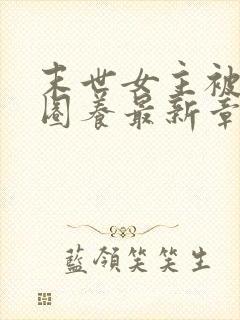 末世女主被
圈养最新章
藍領笑笑生